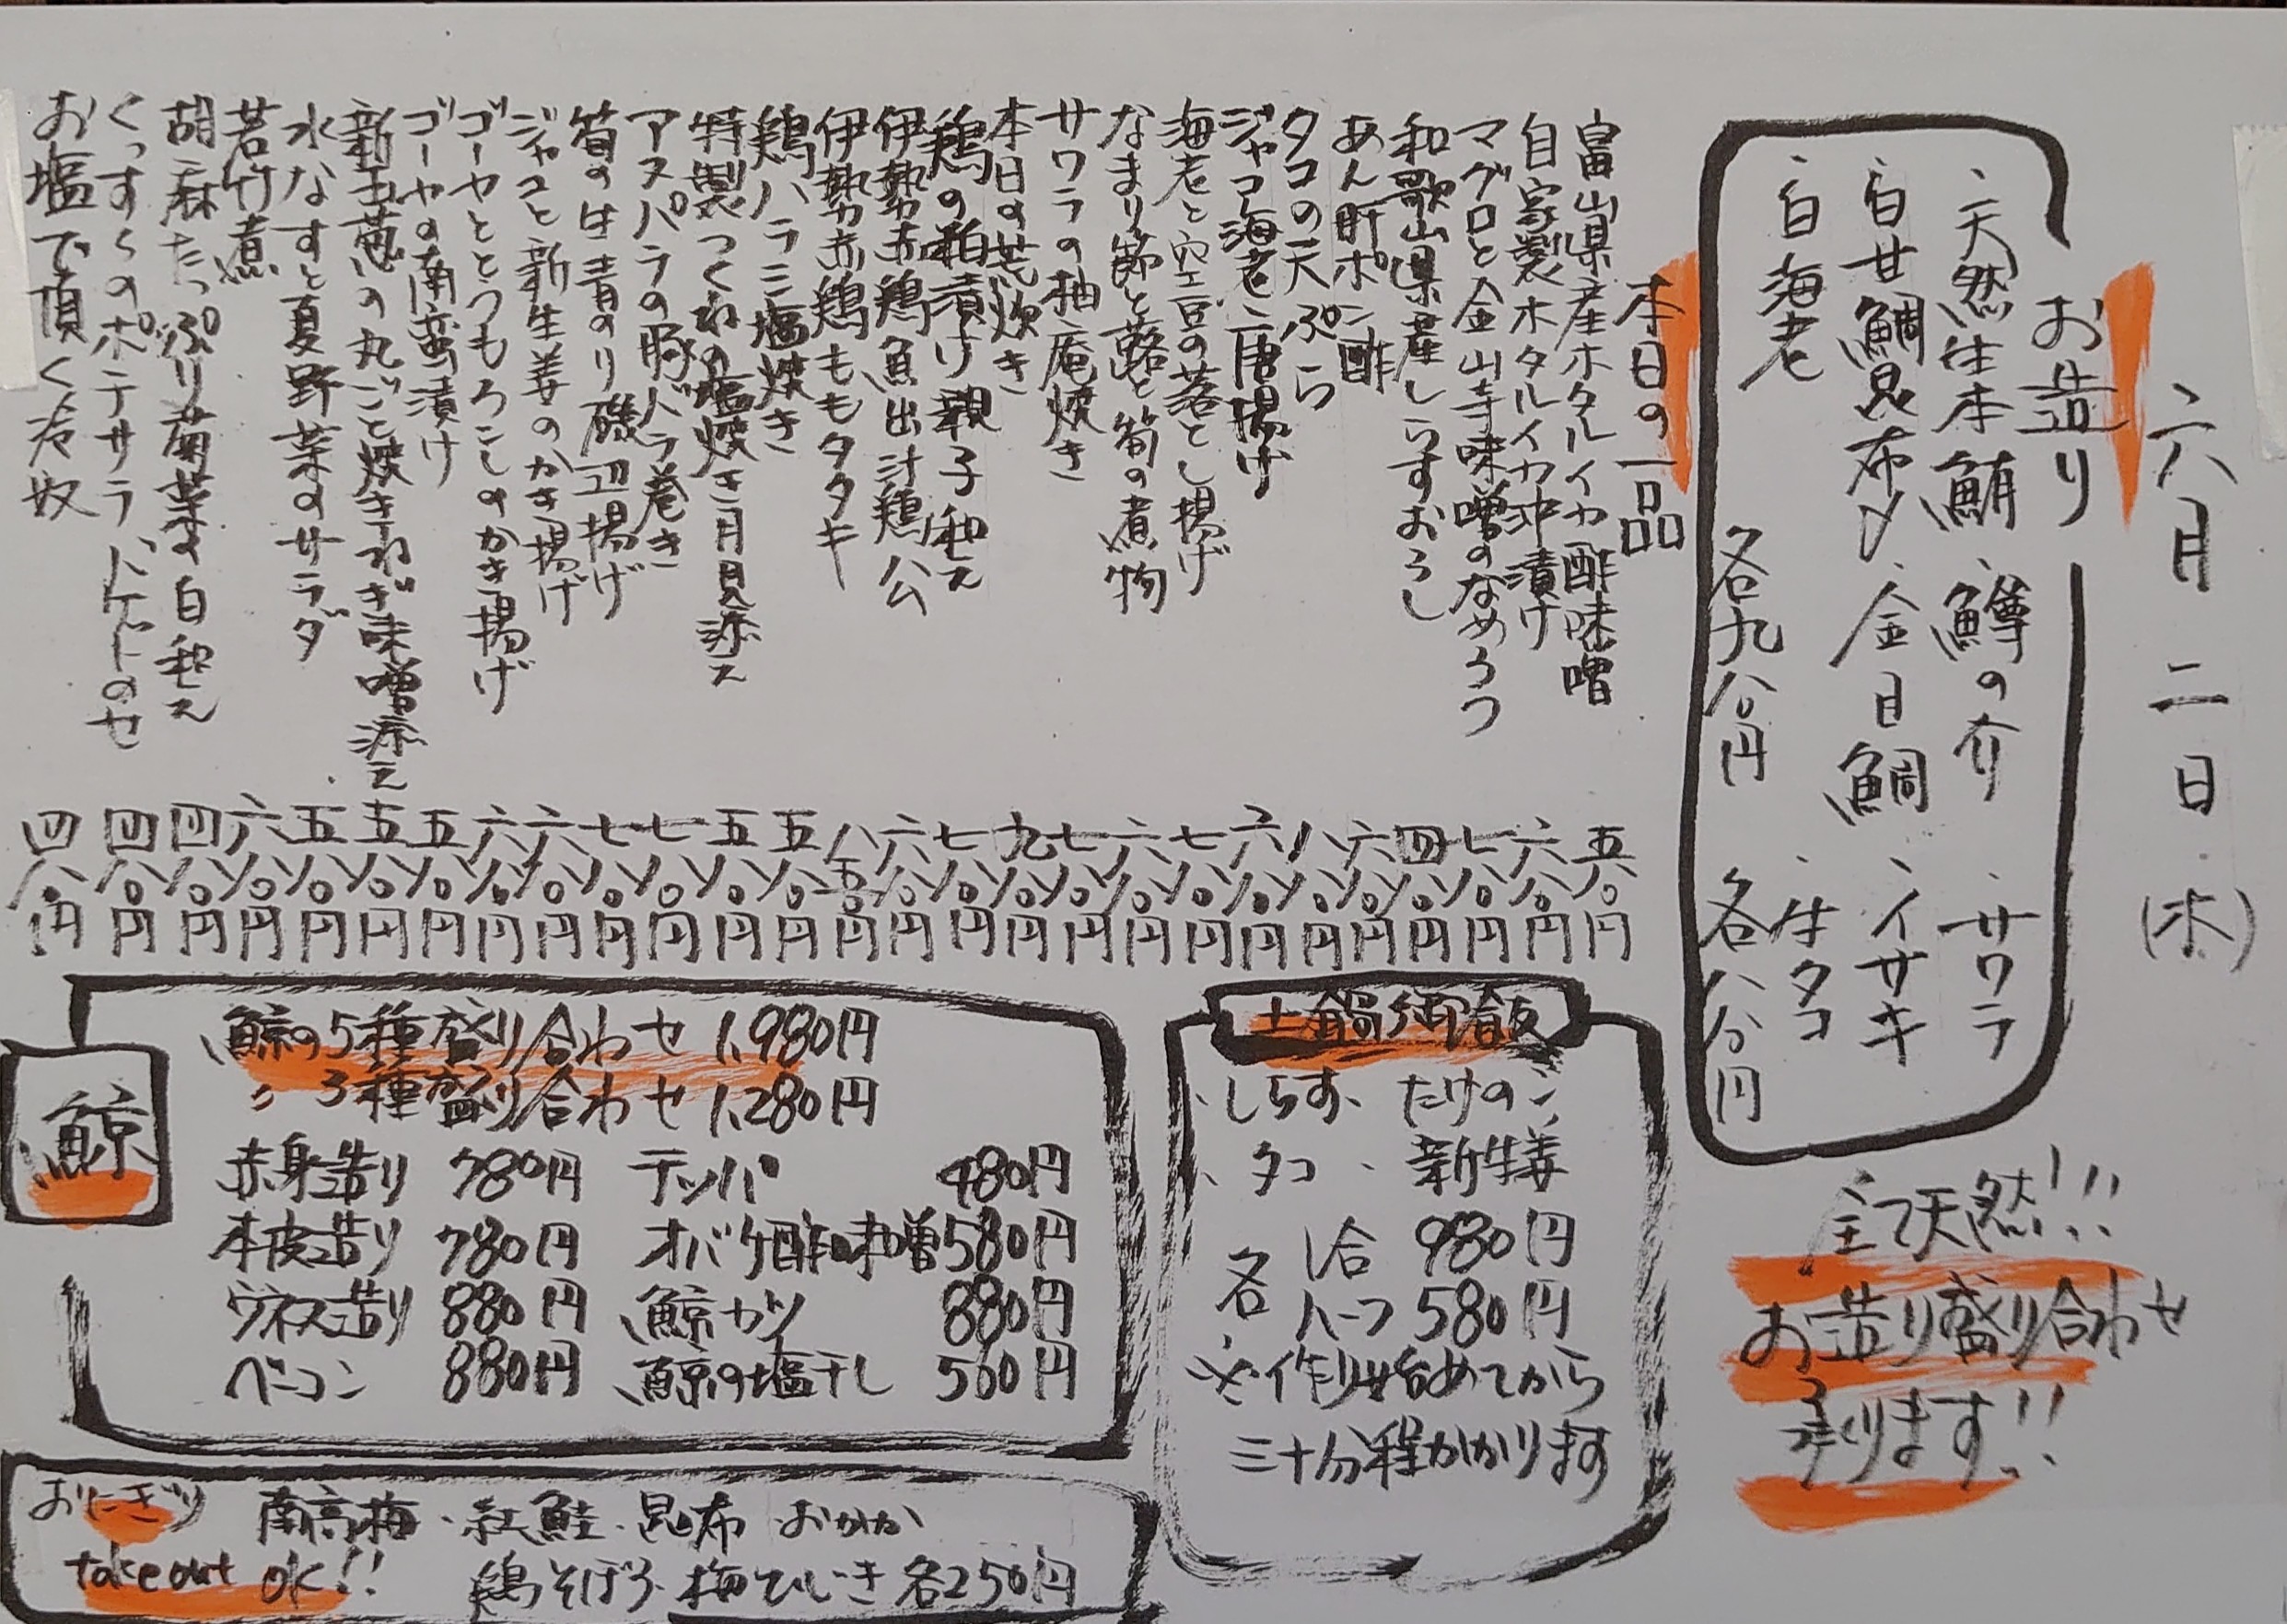 六月二日(木)
お造り
、天然生本鮪 、鱒の介 、サワラ
、白甘鯛昆布〆 、金目鯛 、イサキ
、白海老 、生タコ
各九八〇円 各八八〇円
全て天然!!!
お造り盛り合わせ
承ります!!
本日の一品
富山県産ホタルイカ酢味噌 五八〇円
自家製ホタルイカ沖漬け 六八〇円
マグロと金山寺味噌のなめろう 七八〇円
和歌山県産しらすおろし 四八〇円
あん肝ポン酢 六八〇円
タコの天ぷら 八八〇円
ジャコ海老唐揚げ 六八〇円
海老と空豆の落とし揚げ 七八〇円
なまり節と蕗と筍の煮物 六八〇円
サワラの柚庵焼き 七八〇円
本日の荒炊き 九八〇円
鶏の粕漬け親子和え 七八〇円
伊勢赤鶏魚出汁鶏公 六八〇円
伊勢赤鶏ももタタキ 八五〇円
鶏ハラミ塩焼き 五八〇円
特製つくねの塩焼き月見添え 五八〇円
アスパラの豚バラ巻き 七八〇円
筍の生青のり磯辺揚げ 七八〇円
ジャコと新生姜のかき揚げ 六八〇円
ゴーヤととうもろこしのかき揚げ 六八〇円
ゴーヤの南蛮漬け 五八〇円
新玉葱の丸ごと焼きねぎ味噌添え 五八〇円
水なすと夏野菜のサラダ 五八〇円
若竹煮 六八〇円
胡麻たっぷり菊菜の白和え 四八〇円
くっすくのポテサラ、バケットのせ 四八〇円
お塩で頂く冷奴 四八〇円
土鍋御飯
、しらす、 たけのこ
、タコ 、新生姜
各 1合 980円
ハーフ 580円
※作り始めてから
三十分程かかります
鯨
鯨の5種盛り合わせ 1,980円
〃 3種盛り合わせ 1,280円
赤身造り 780円 テッパ 480円
本皮造り 780円 オバケ酢味噌 580円
ウネス造り 880円 鯨カツ 880円
ベーコン 880円 鯨の塩干し 560円
おにぎり 南高梅・紅鮭・昆布・おかか
takeout OK!! 鶏そぼろ・梅ひじき 各250円